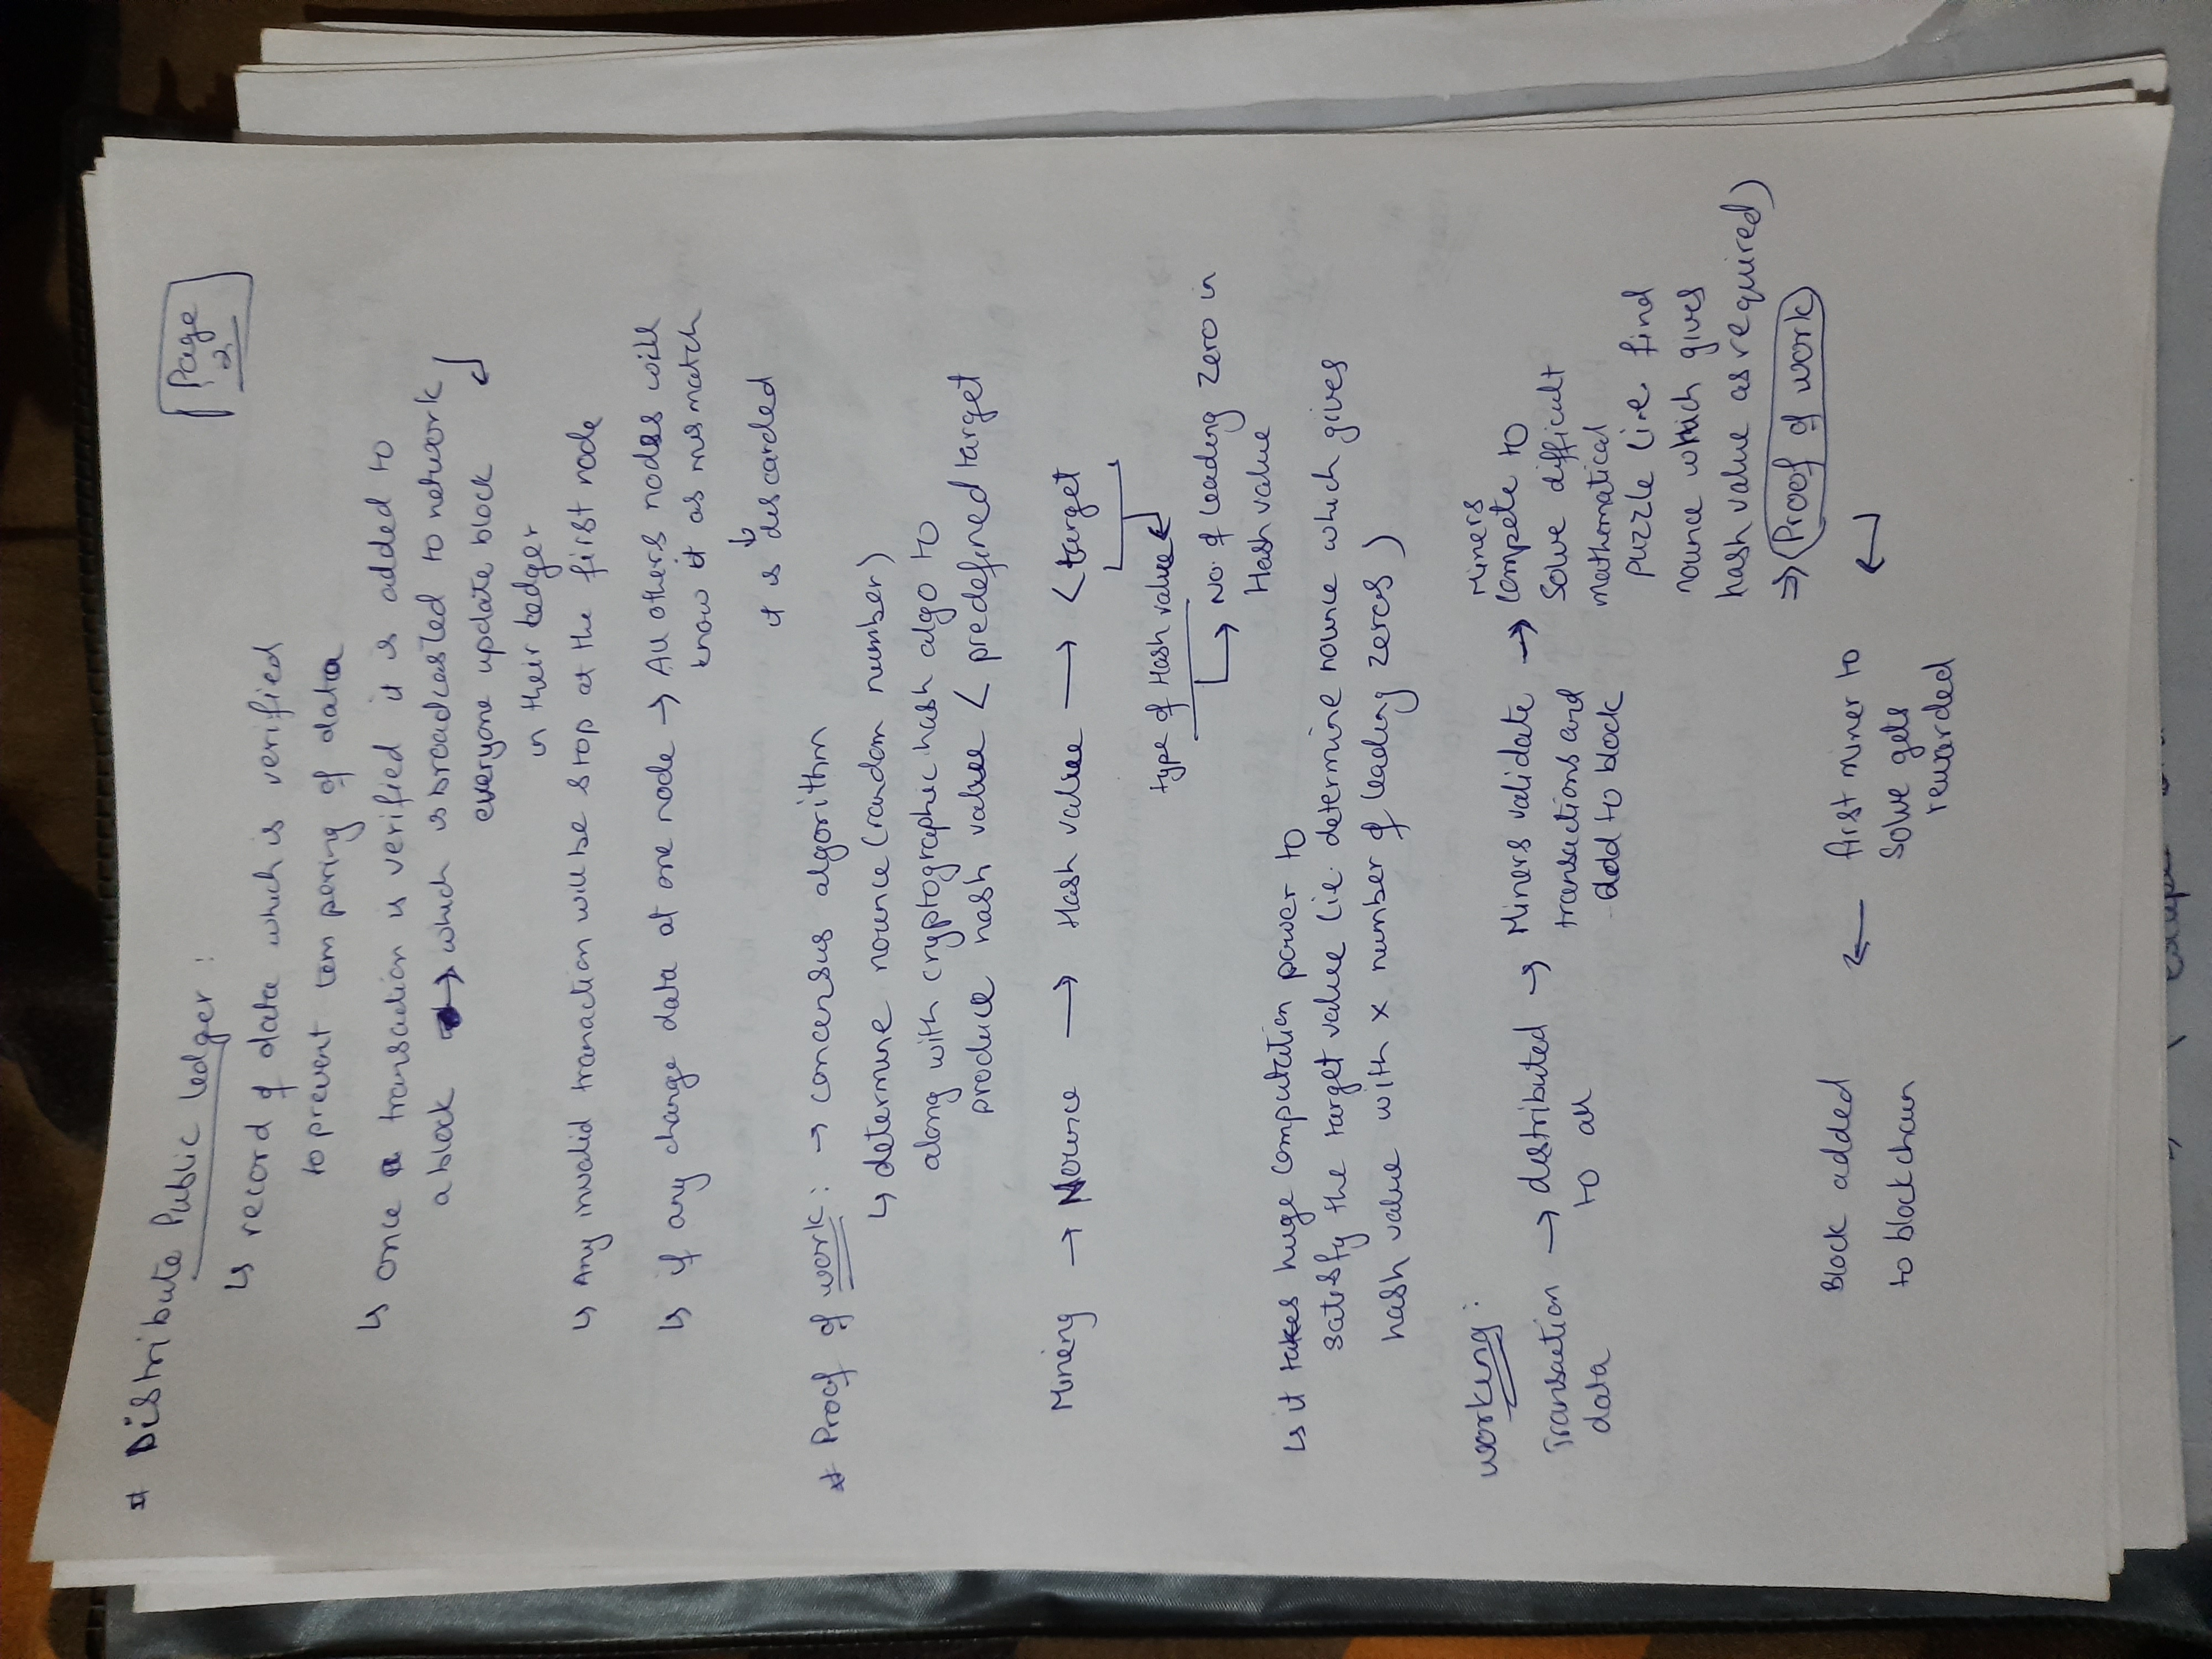 * Distribute Public ledger :
Page
2
↳ record of data which is verified
to prevent tempering of data
↳ once a transaction is verified it is added to
a block → which is broadcasted to network
everyone update block
in their ledger
↳ Any invalid tranaction will be stop at the first node
↳ if any change data at one node → All others nodes will
know it as mismatch
↓
it is discarded
* Proof of work : → concensus algorithm
↳ determine nounce (random number)
along with cryptographic hash algo to
produce hash value < predefined target
Mining → Nounce → Hash value → < target
type of Hash value
↳ No. of leading zero in
Hash value
↳ it takes huge computation power to
satisfy the target value (i.e. determine nounce which gives
hash value with x number of leading zeros)
working :
Transaction data → distributed to all → Miners validate transactions and add to block → Miners
compete to
solve difficult
mathematical
puzzle (i.e. find
nounce which gives
hash value as required)
⇒ Proof of work
first miner to
solve gets
rewarded
←
Block added
to blockchain